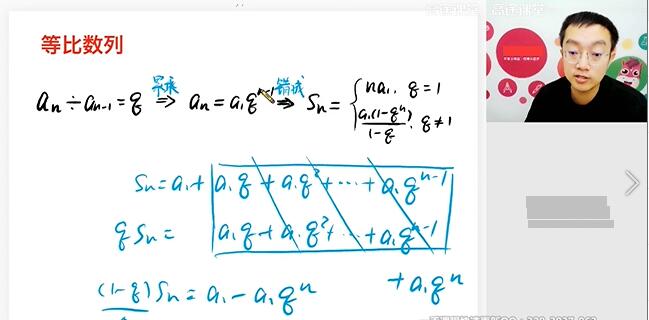 等比数列
aₙ ÷ aₙ₋₁ = q ⇒(累乘) aₙ = a₁qⁿ⁻¹ ⇒(错减) Sₙ = { na₁, q = 1
a₁(1-qⁿ)/(1-q), q ≠ 1
Sₙ = a₁ + a₁q + a₁q² + ··· + a₁qⁿ⁻¹
qSₙ = a₁q + a₁q² + ··· + a₁qⁿ⁻¹
+ a₁qⁿ
(1-q)Sₙ = a₁ - a₁qⁿ